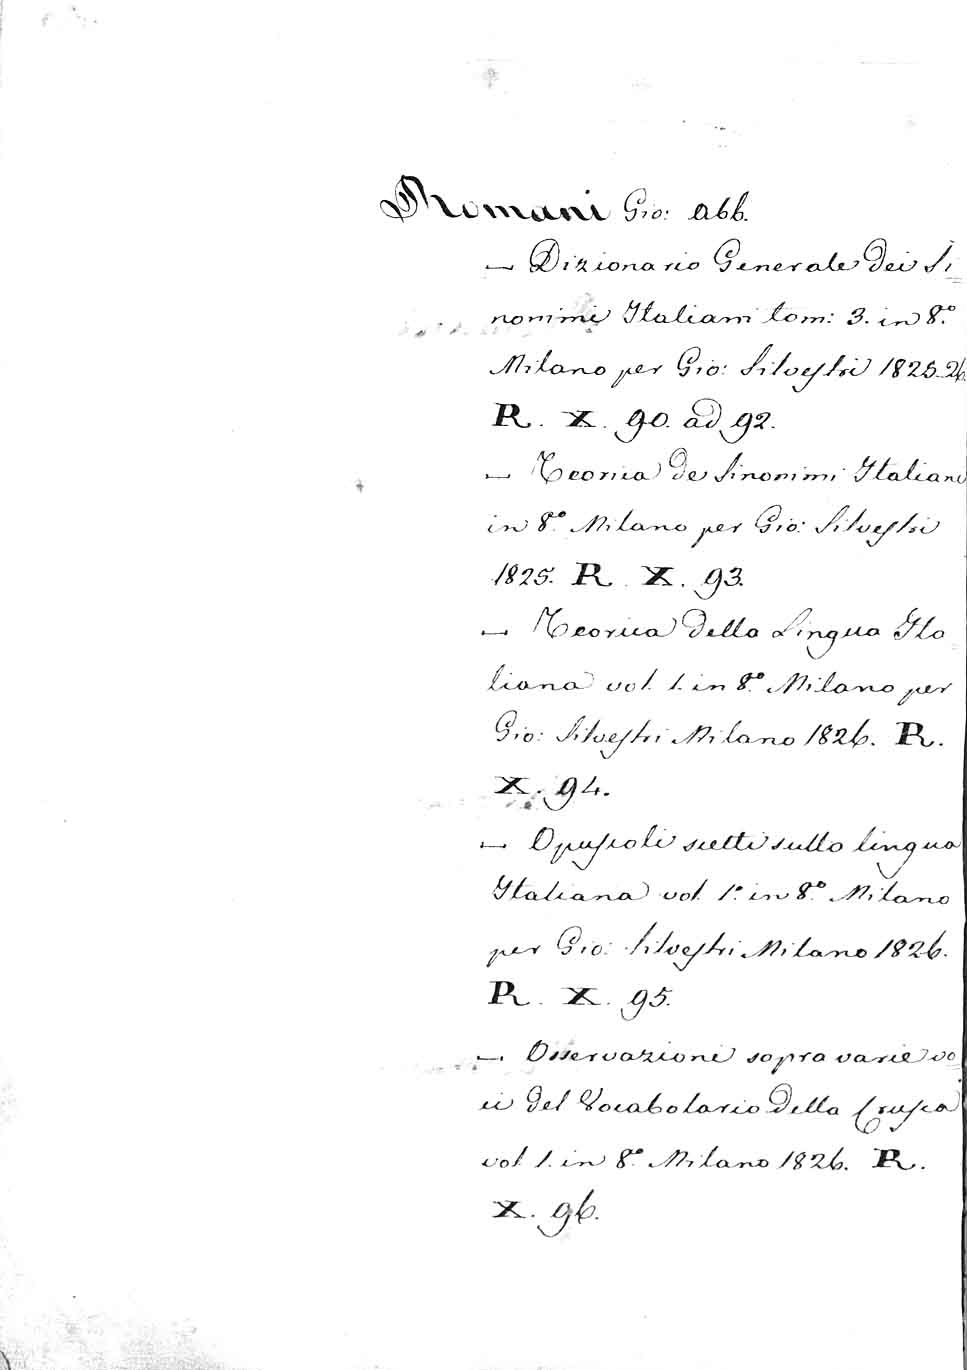 Romani Gio: abb.
— Dizionario Generale dei Si=
nonimi Italiani tom: 3. in 8.°
Milano per Gio: Silvestri 1825-26
R. X. 90. ad 92.
— Teorica de Sinonimi Italiani
in 8.° Milano per Gio: Silvestri
1825. R. X. 93.
— Teorica della Lingua Ita=
liana vol. 1. in 8.° Milano per
Gio: Silvestri Milano 1826. R.
X. 94.
— Opuscoli scelti sulla lingua
Italiana vol. 1.° in 8.° Milano
per Gio: Silvestri Milano 1826.
R. X. 95.
— Osservazioni sopra varie vo=
ci del Vocabolario della Crusca
vol. 1. in 8.° Milano 1826. R.
X. 96.